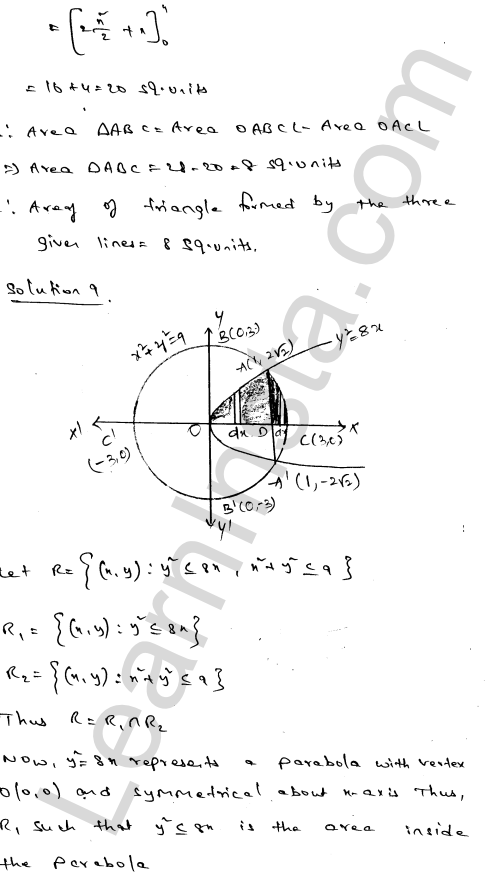 = [2 x²/2 + x]₀⁴
= 16 + 4 = 20 sq.units
∴ Area ΔABC = Area OABCL - Area OACL
⇒ Area ΔABC = 28 - 20 = 8 sq.units
∴ Area of triangle formed by the three
given lines = 8 sq.units.
Solution 9.
Y
x²+y²=9
B(0,3)
y²=8x
A(1, 2√2)
X'
C'
(-3,0)
O
dx
D
dx
C(3,0)
X
A'(1,-2√2)
B'(0,-3)
Y'
Let R = {(x,y) : y² ≤ 8x, x²+y² ≤ 9}
R₁ = {(x,y) : y² ≤ 8x}
R₂ = {(x,y) : x²+y² ≤ 9}
Thus R = R₁∩R₂
Now, y² = 8x represents a parabola with vertex
O(0,0) and symmetrical about x-axis Thus,
R₁ such that y² ≤ 8x is the area inside
the parabola
LearnInsta.com